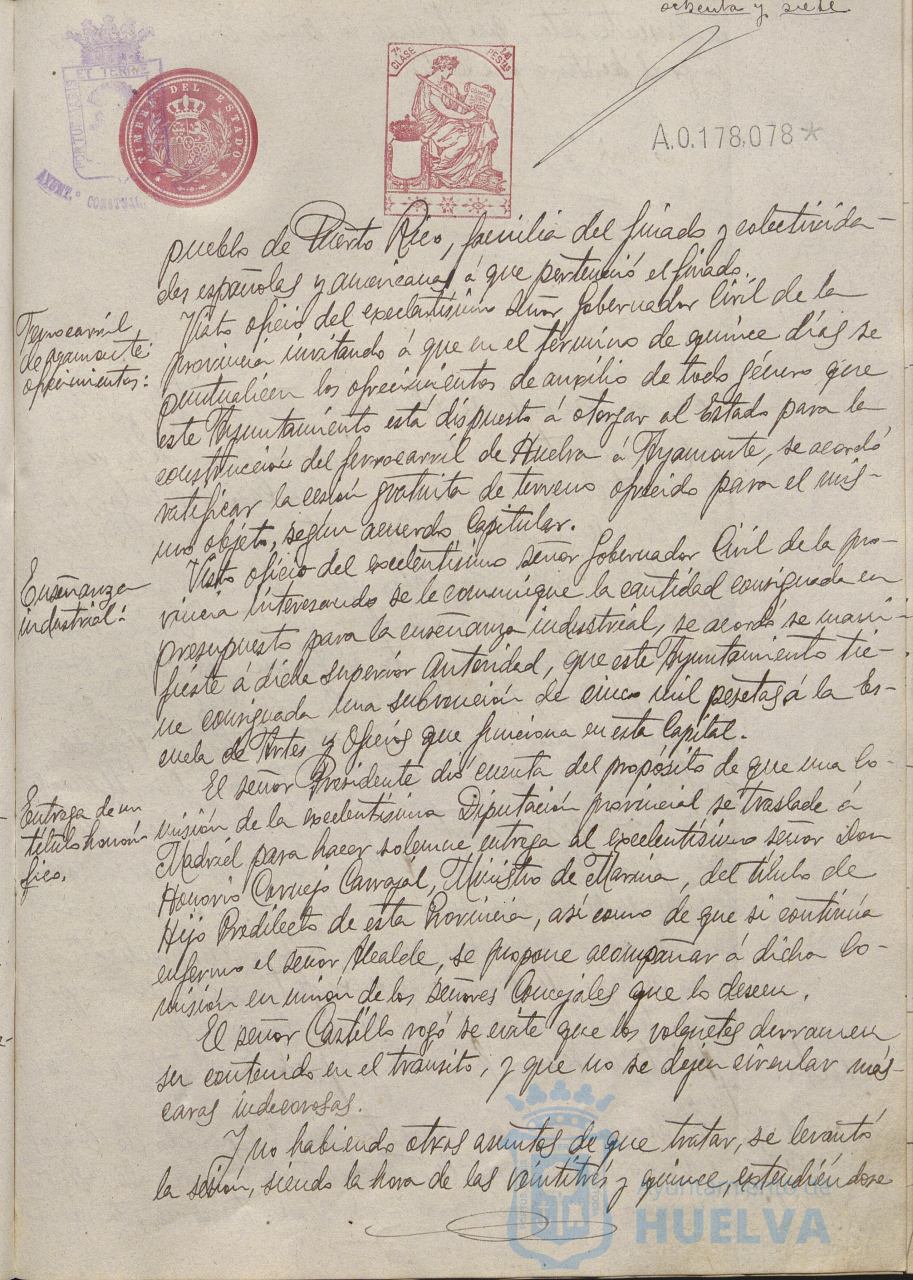 ochenta y siete
PORTUS MARIS ET TERRAE
AYUNT.º CONSTNAL.
TIMBRE DEL ESTADO
7ª CLASE
PESTAS
A.0.178,078*
pueblo de Puerto Rico, familia del finado y colectivida-
des españolas y americanas á que perteneció el finado.
Ferrocarril
de Ayamonte:
ofrecimientos:
Visto oficio del excelentísimo señor Gobernador Civil de la
provincia invitando á que en el término de quince días se
puntualicen los ofrecimientos de auxilio de todo género que
este Ayuntamiento está dispuesto á otorgar al Estado para la
construcción del ferrocarril de Huelva á Ayamonte, se acordó
ratificar la cesión gratuita de terreno ofrecido para el mis-
mo objeto, según acuerdo Capitular.
Enseñanza
industrial:
Visto oficio del excelentísimo señor Gobernador Civil de la pro-
vincia interesando se le comunique la cantidad consignada en
presupuesto para la enseñanza industrial, se acordó se mani-
fieste á dicha superior autoridad, que este Ayuntamiento tie-
ne consignada una subvención de cinco mil pesetas á la Es-
cuela de Artes y Oficios que funciona en esta Capital.
Entrega de un
título honorí-
fico.
El señor Presidente dió cuenta del propósito de que una Co-
misión de la excelentísima Diputación provincial se traslade á
Madrid para hacer solemne entrega al excelentísimo señor Don
Honorio Cornejo Carvajal, Ministro de Marina, del título de
Hijo Predilecto de esta Provincia, así como de que si continúa
enfermo el señor Alcalde, se propone acompañar á dicha Co-
misión en unión de los señores Concejales que lo deseen.
El señor Castillo rogó se evite que los volquetes derramen
su contenido en el tránsito, y que no se dejen circular más-
caras indecorosas.
Y no habiendo otros asuntos de que tratar, se levantó
la sesión, siendo la hora de las veintitrés y quince, extendiéndose
Ayuntamiento de
HUELVA